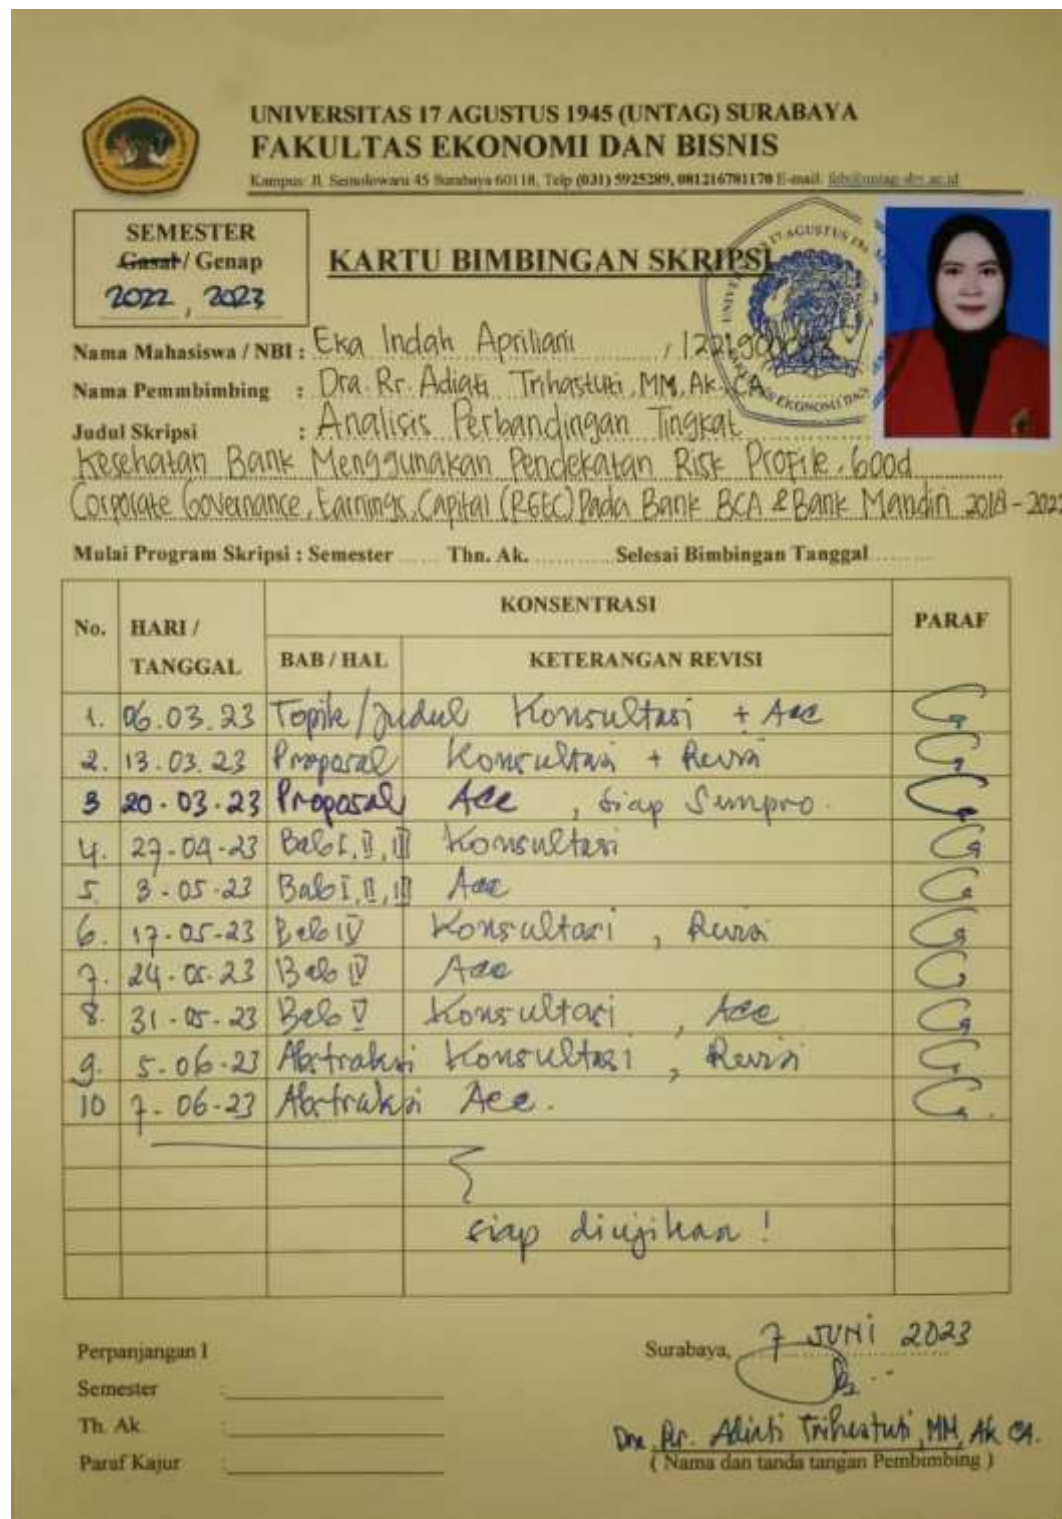 UNIVERSITAS 17 AGUSTUS 1945 (UNTAG) SURABAYA
FAKULTAS EKONOMI DAN BISNIS
Kampus: Jl. Semolowaru 45 Surabaya 60118, Telp (031) 5925289, 081216781170 E-mail: feb@untag-sby.ac.id
SEMESTER
Gasal / Genap
2022 , 2023
KARTU BIMBINGAN SKRIPSI
Nama Mahasiswa / NBI : Eka Indah Apriliani /
Nama Pemmbimbing : Dra. Rr. Adiati Trihastuti, MM, Ak. CA
Judul Skripsi : Analisis Perbandingan Tingkat
Kesehatan Bank Menggunakan Pendekatan Risk Profile, Good
Corporate Governance, Earnings, Capital (RGEC) Pada Bank BCA & Bank Mandiri 2018 - 2022
Mulai Program Skripsi : Semester ...... Thn. Ak. ........... Selesai Bimbingan Tanggal ........
No. HARI / TANGGAL KONSENTRASI PARAF
BAB / HAL KETERANGAN REVISI
1. 06.03.23 Topik/Judul Konsultasi + Acc
2. 13.03.23 Proposal Konsultasi + Revisi
3 20-03-23 Proposal Acc , siap Sempro.
4. 27-04-23 Bab I, II, III Konsultasi
5. 3-05-23 Bab I, II, III Acc
6. 17-05-23 Bab IV Konsultasi , Revisi
7. 24-05-23 Bab IV Acc
8. 31-05-23 Bab V Konsultasi , Acc
9. 5-06-23 Abstraksi Konsultasi , Revisi
10 7-06-23 Abstraksi Acc.
siap diujikan !
Perpanjangan I
Surabaya, 7 JUNI 2023
Semester :
Th. Ak. :
Dra. Rr. Adiati Trihastuti, MM, Ak CA.
Paraf Kajur :
( Nama dan tanda tangan Pembimbing )